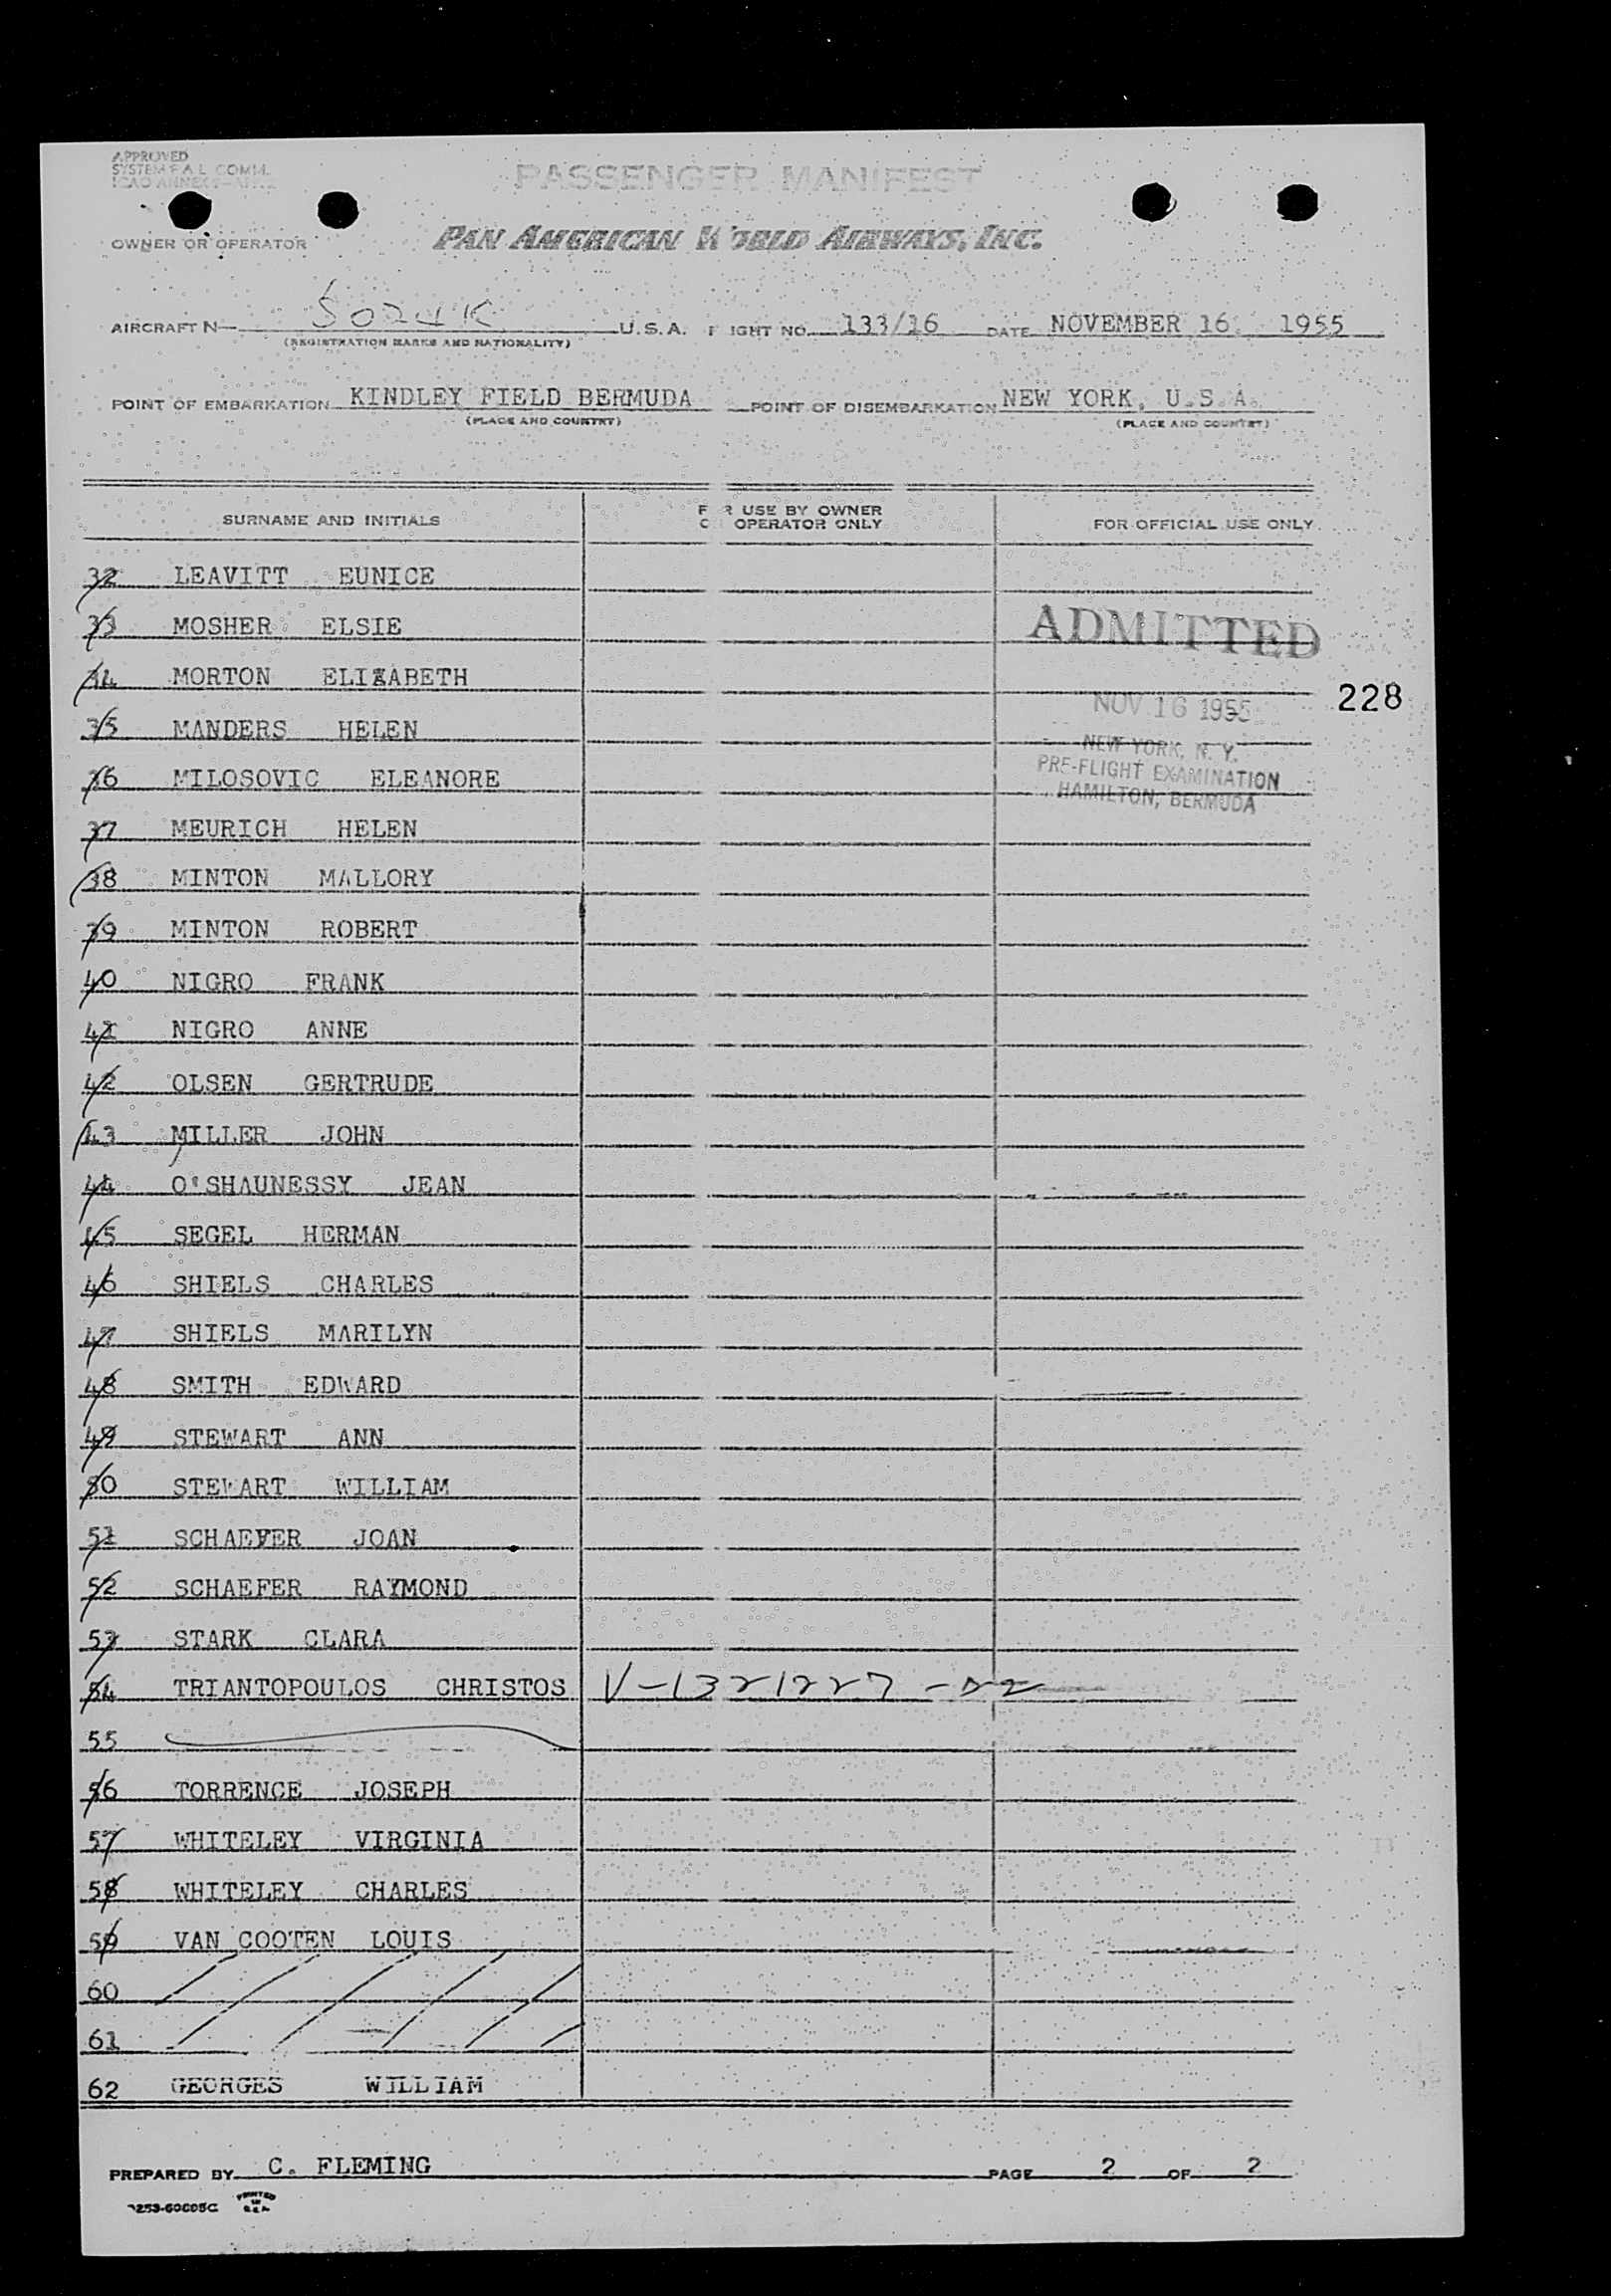 APPROVED
SYSTEM F.A.L. COMM.
ICAO ANNEX 9
PASSENGER MANIFEST
OWNER OR OPERATOR PAN AMERICAN WORLD AIRWAYS, INC.
AIRCRAFT N 5024K U.S.A. F IGHT NO. 133/16 DATE NOVEMBER 16. 1955
(REGISTRATION MARKS AND NATIONALITY)
POINT OF EMBARKATION KINDLEY FIELD BERMUDA POINT OF DISEMBARKATION NEW YORK, U.S.A.
(PLACE AND COUNTRY) (PLACE AND COUNTRY)
SURNAME AND INITIALS F R USE BY OWNER O OPERATOR ONLY FOR OFFICIAL USE ONLY
32 LEAVITT EUNICE
33 MOSHER ELSIE
ADMITTED
34 MORTON ELIZABETH
228
NOV 16 1955
35 MANDERS HELEN
NEW YORK, N. Y.
PRE-FLIGHT EXAMINATION
36 MILOSOVIC ELEANORE
HAMILTON, BERMUDA
37 MEURICH HELEN
38 MINTON MALLORY
39 MINTON ROBERT
40 NIGRO FRANK
41 NIGRO ANNE
42 OLSEN GERTRUDE
43 MILLER JOHN
44 O'SHAUNESSY JEAN
45 SEGEL HERMAN
46 SHIELS CHARLES
47 SHIELS MARILYN
48 SMITH EDWARD
49 STEWART ANN
50 STEWART WILLIAM
51 SCHAEFER JOAN
52 SCHAEFER RAYMOND
53 STARK CLARA
54 TRIANTOPOULOS CHRISTOS V-1321227
55
56 TORRENCE JOSEPH
57 WHITELEY VIRGINIA
58 WHITELEY CHARLES
59 VAN COOTEN LOUIS
60
61
62 GEORGES WILLIAM
PREPARED BY C. FLEMING PAGE 2 OF 2
PRINTED IN U.S.A.